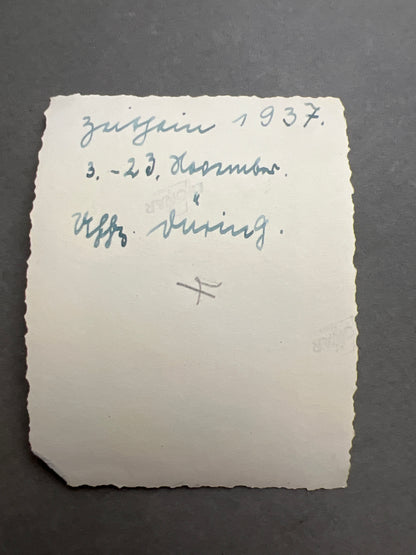 Zeithain 1937.
3. - 23. November.
Uffz. Düring.